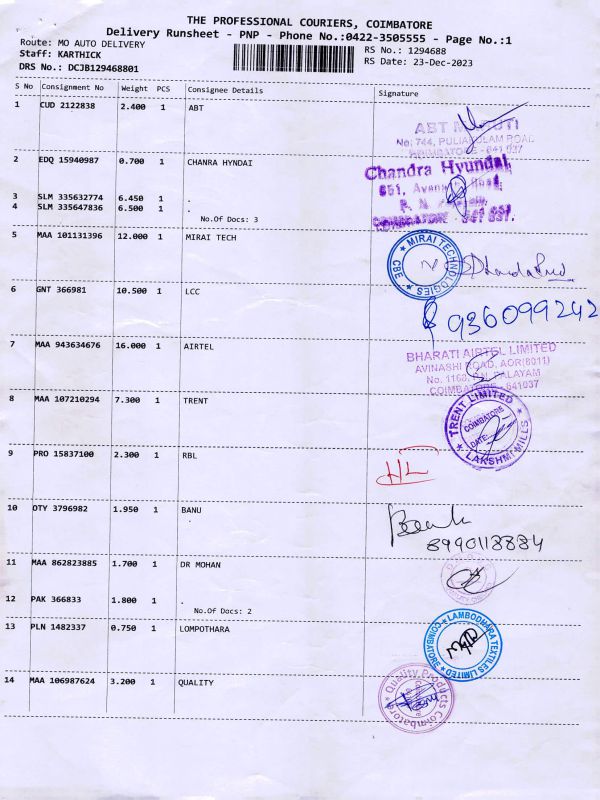 THE PROFESSIONAL COURIERS, COIMBATORE
Delivery Runsheet - PNP - Phone No.:0422-3505555 - Page No.:1
Route: MO AUTO DELIVERY RS No.: 1294688
Staff: KARTHICK RS Date: 23-Dec-2023
DRS No.: DCJB129468801
S No Consignment No Weight PCS Consignee Details Signature
1 CUD 2122838 2.400 1 ABT
ABT MARUTI
No: 744, PULIAKULAM ROAD
COIMBATORE - 641 037
2 EDQ 15940987 0.700 1 CHANRA HYNDAI
Chandra Hyundai
651, Avanashi Road,
COIMBATORE 641 037.
3 SLM 335632774 6.450 1 .
4 SLM 335647836 6.500 1 .
No.Of Docs: 3
5 MAA 101131396 12.000 1 MIRAI TECH
MIRAI TECHNOLOGIES
CBE
6 GNT 366981 10.500 1 LCC
936099242
7 MAA 943634676 16.000 1 AIRTEL
BHARATI AIRTEL LIMITED
AVINASHI ROAD, AOR(8011)
No. 1163, PN. PALAYAM
COIMBATORE - 641037
8 MAA 107210294 7.300 1 TRENT
TRENT LIMITED
COIMBATORE
DATE:
LAKSHMI MILLS
9 PRO 15837100 2.300 1 RBL
10 OTY 3796982 1.950 1 BANU
.
8990118884
11 MAA 862823885 1.700 1 DR MOHAN
12 PAK 366833 1.800 1 .
No.Of Docs: 2
13 PLN 1482337 0.750 1 LOMPOTHARA
LAMBODHARA TEXTILES LIMITED
COIMBATORE
14 MAA 106987624 3.200 1 QUALITY
Quality Products
Coimbatore